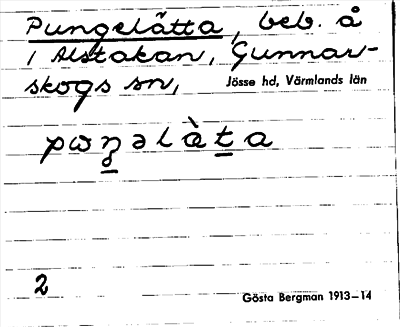 Pungelätta, beb. å
i Alstakan, Gunnar-
skogs sn, Jösse hd, Värmlands län
2
Gösta Bergman 1913–14